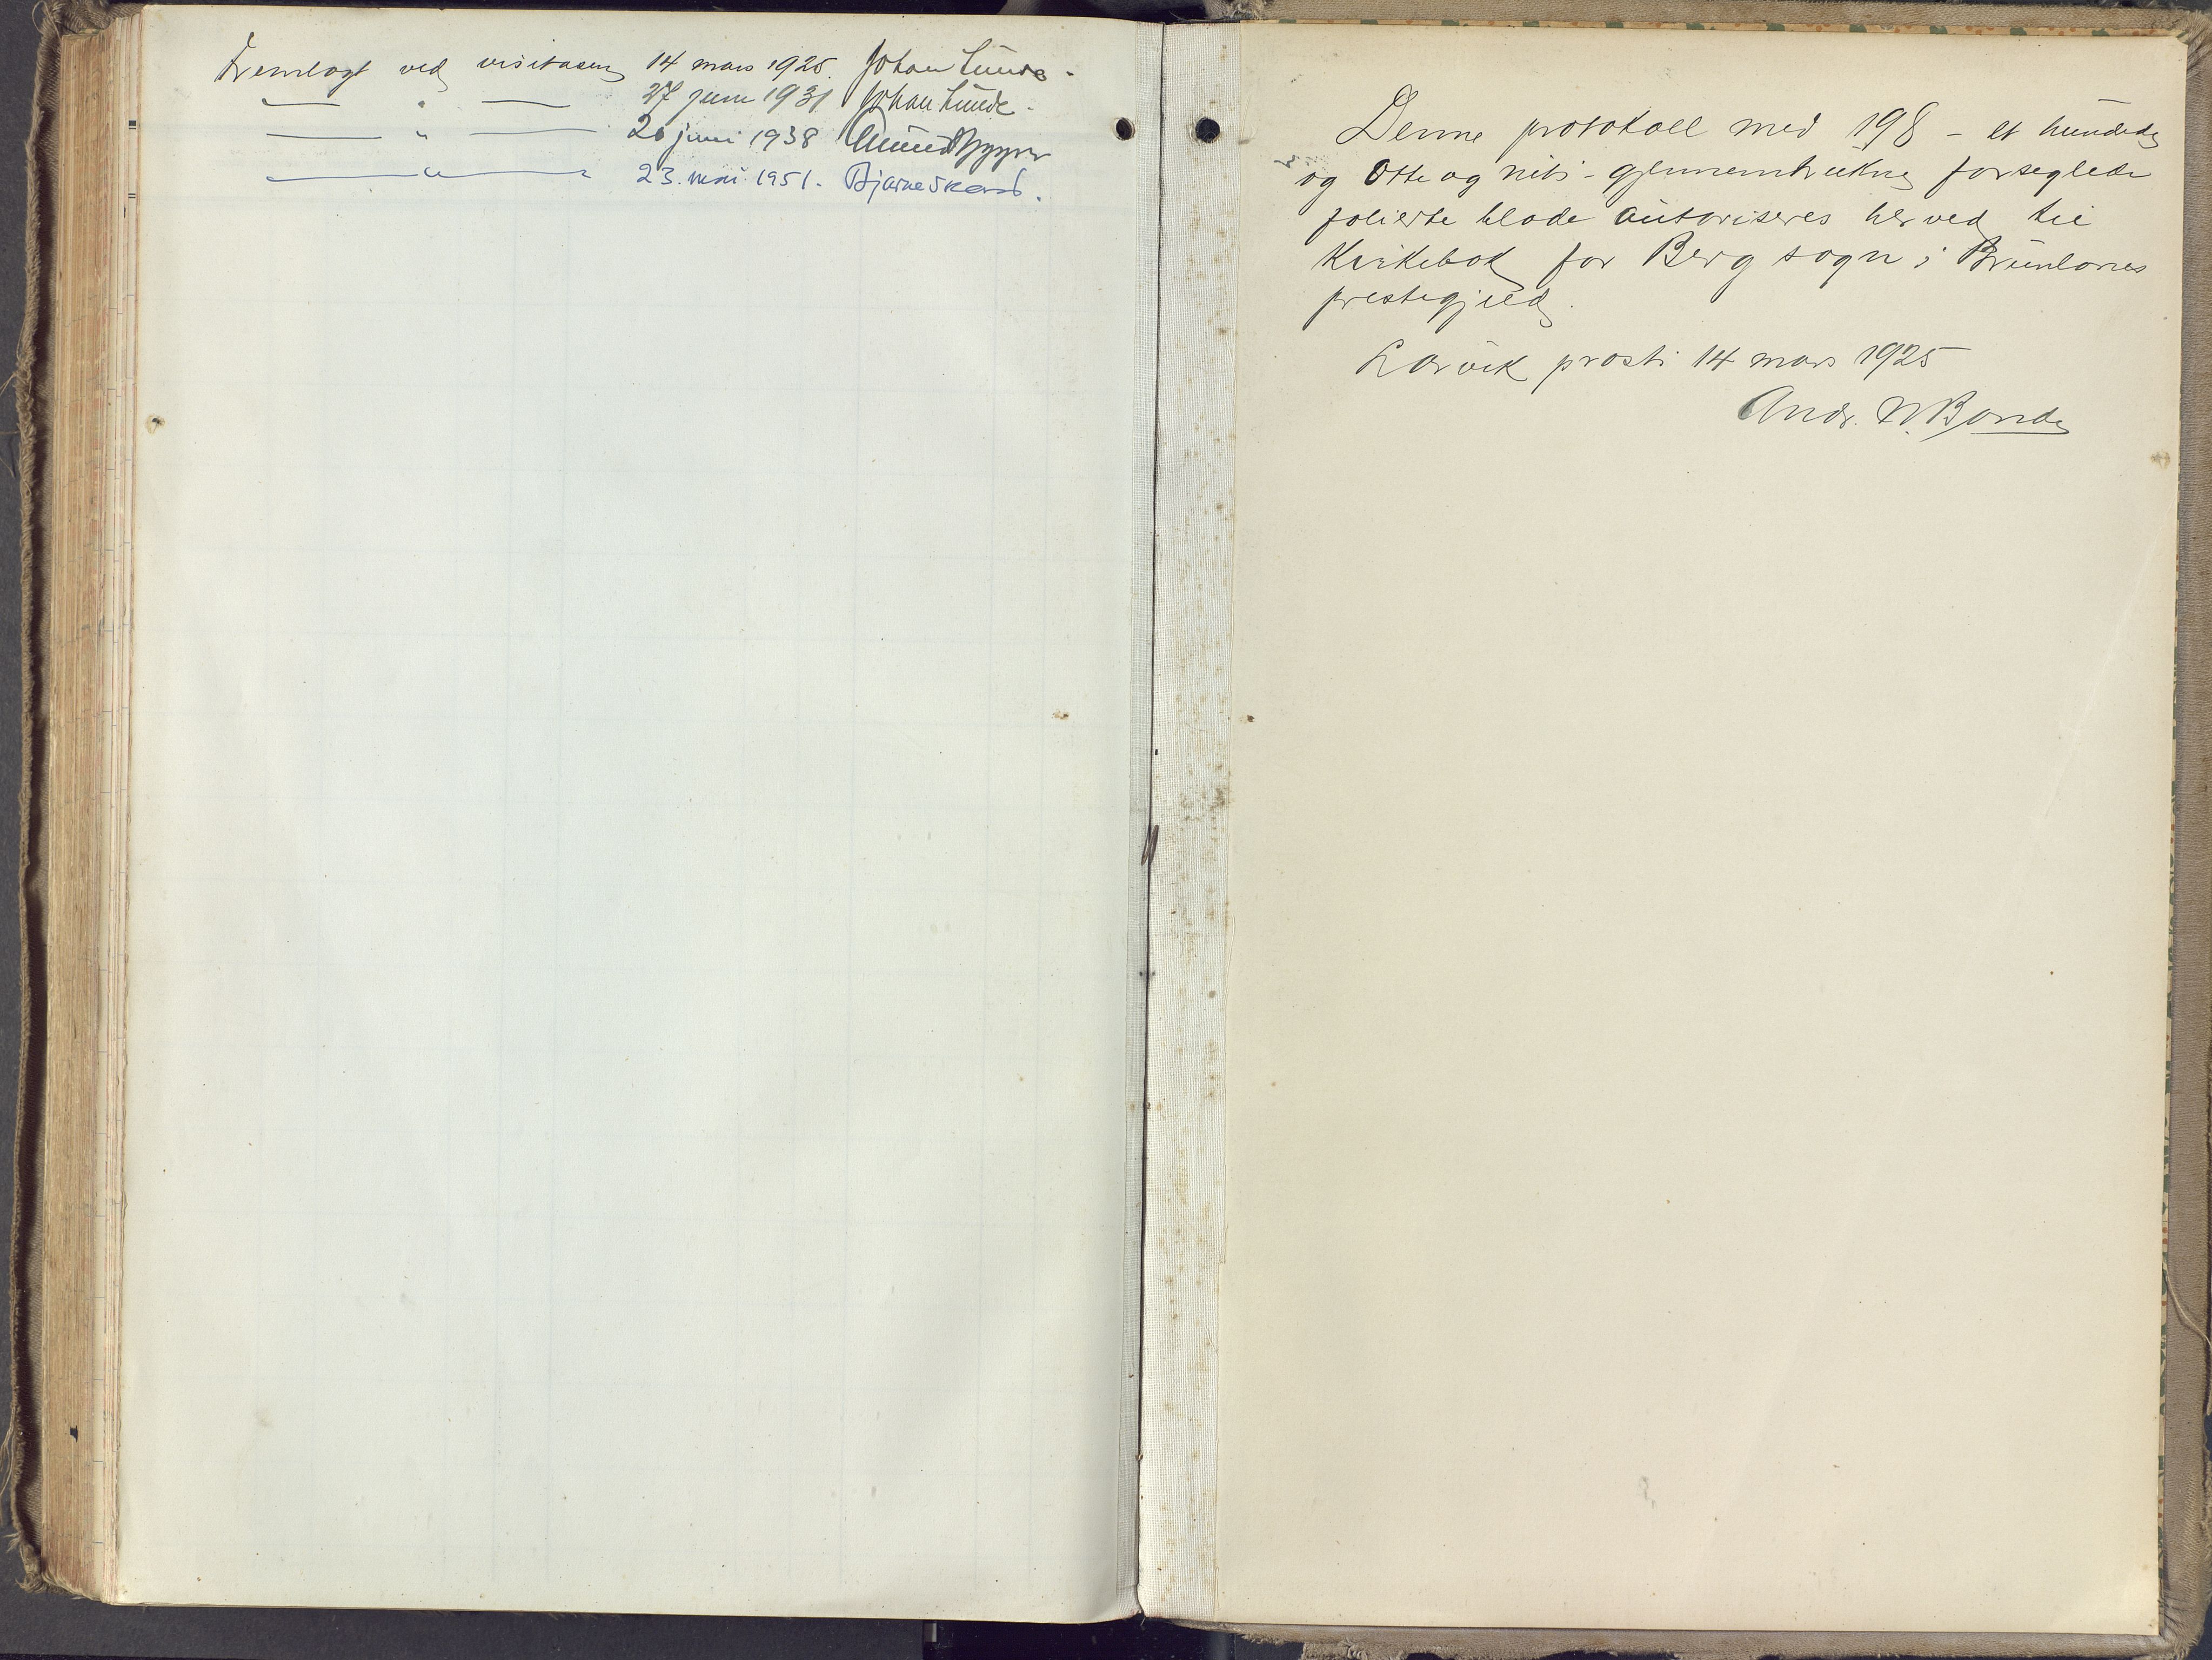 Fremlagt ved visitasen 14 mars 1925. Johan Lunde.
— " — 27 juni 1931 Johan Lunde.
— " — 20 juni 1938
— " — 23. mai 1951. Bjarne Skard.
Denne protokoll med 198 - et hundrede
og otte og niti - gjennemtrukne forseglede
folierte blade autoriseres herved til
Kirkebok for Berg sogn i Brunlanes
prestegjeld.
Larvik prosti 14 mars 1925
Andr. N. Bonde